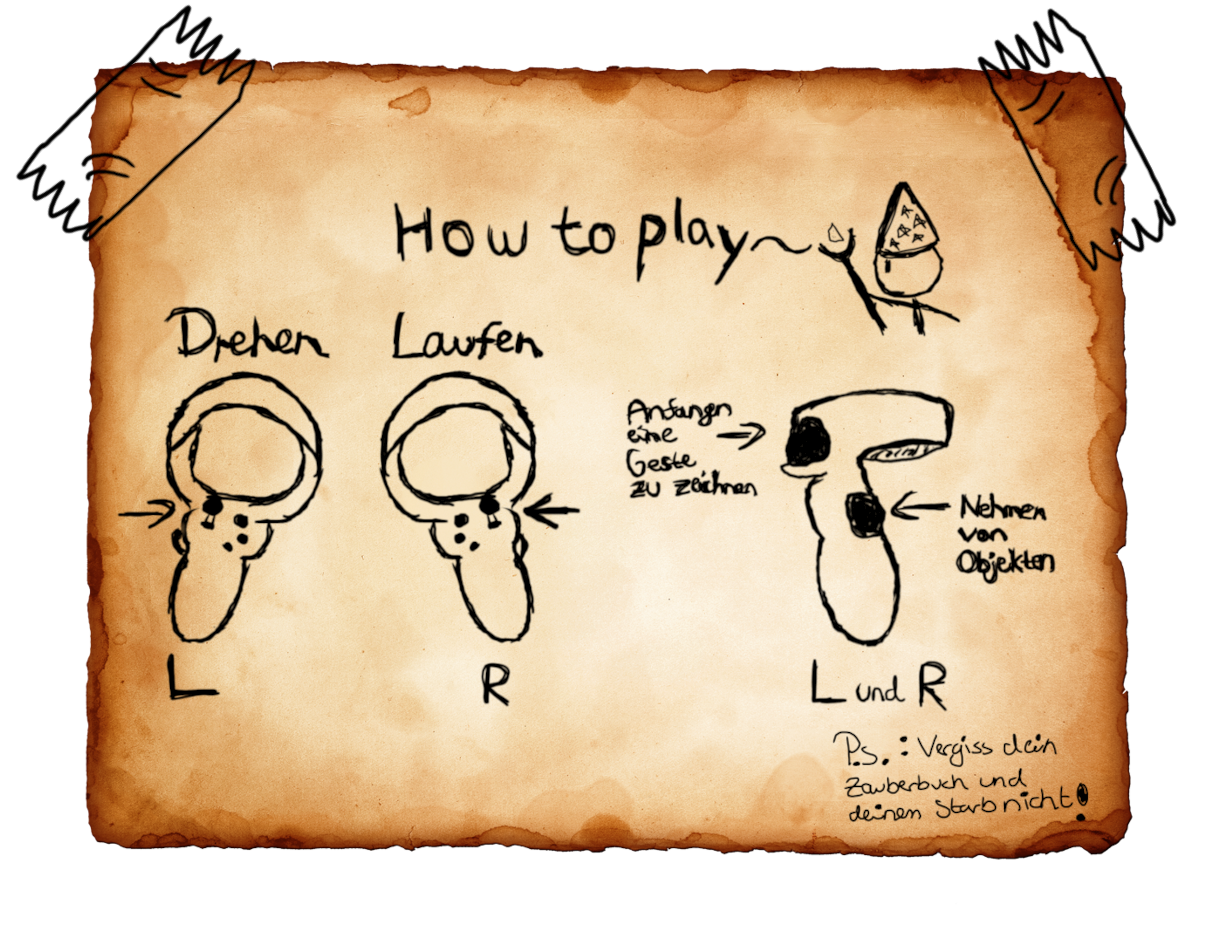 How to play~
Drehen
Laufen
Anfangen
eine
Geste
zu zeichnen
Nehmen
von
Objekten
L
R
L und R
P.s. : Vergiss dein
Zauberbuch und
deinen Starb nicht!